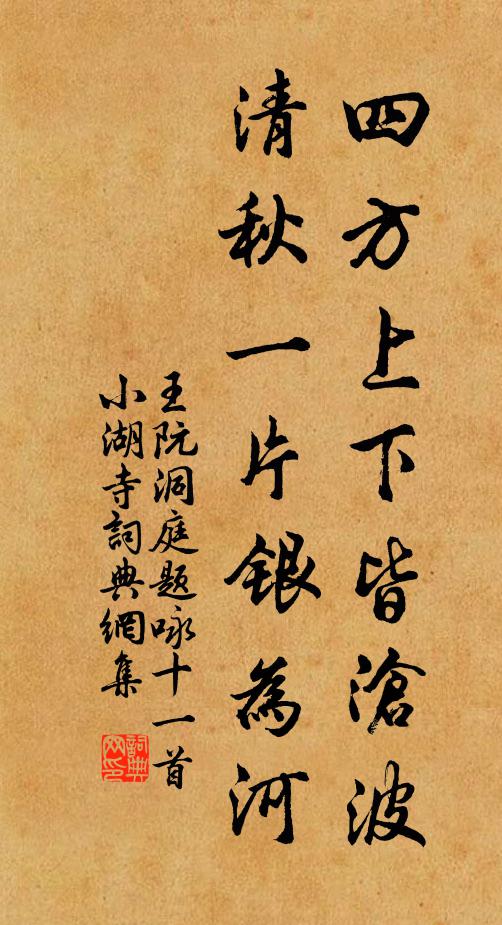 四方上下皆滄波
清秋一片銀為河
王阮洞庭題咏十一首
小湖寺詞典網集
詞典网印